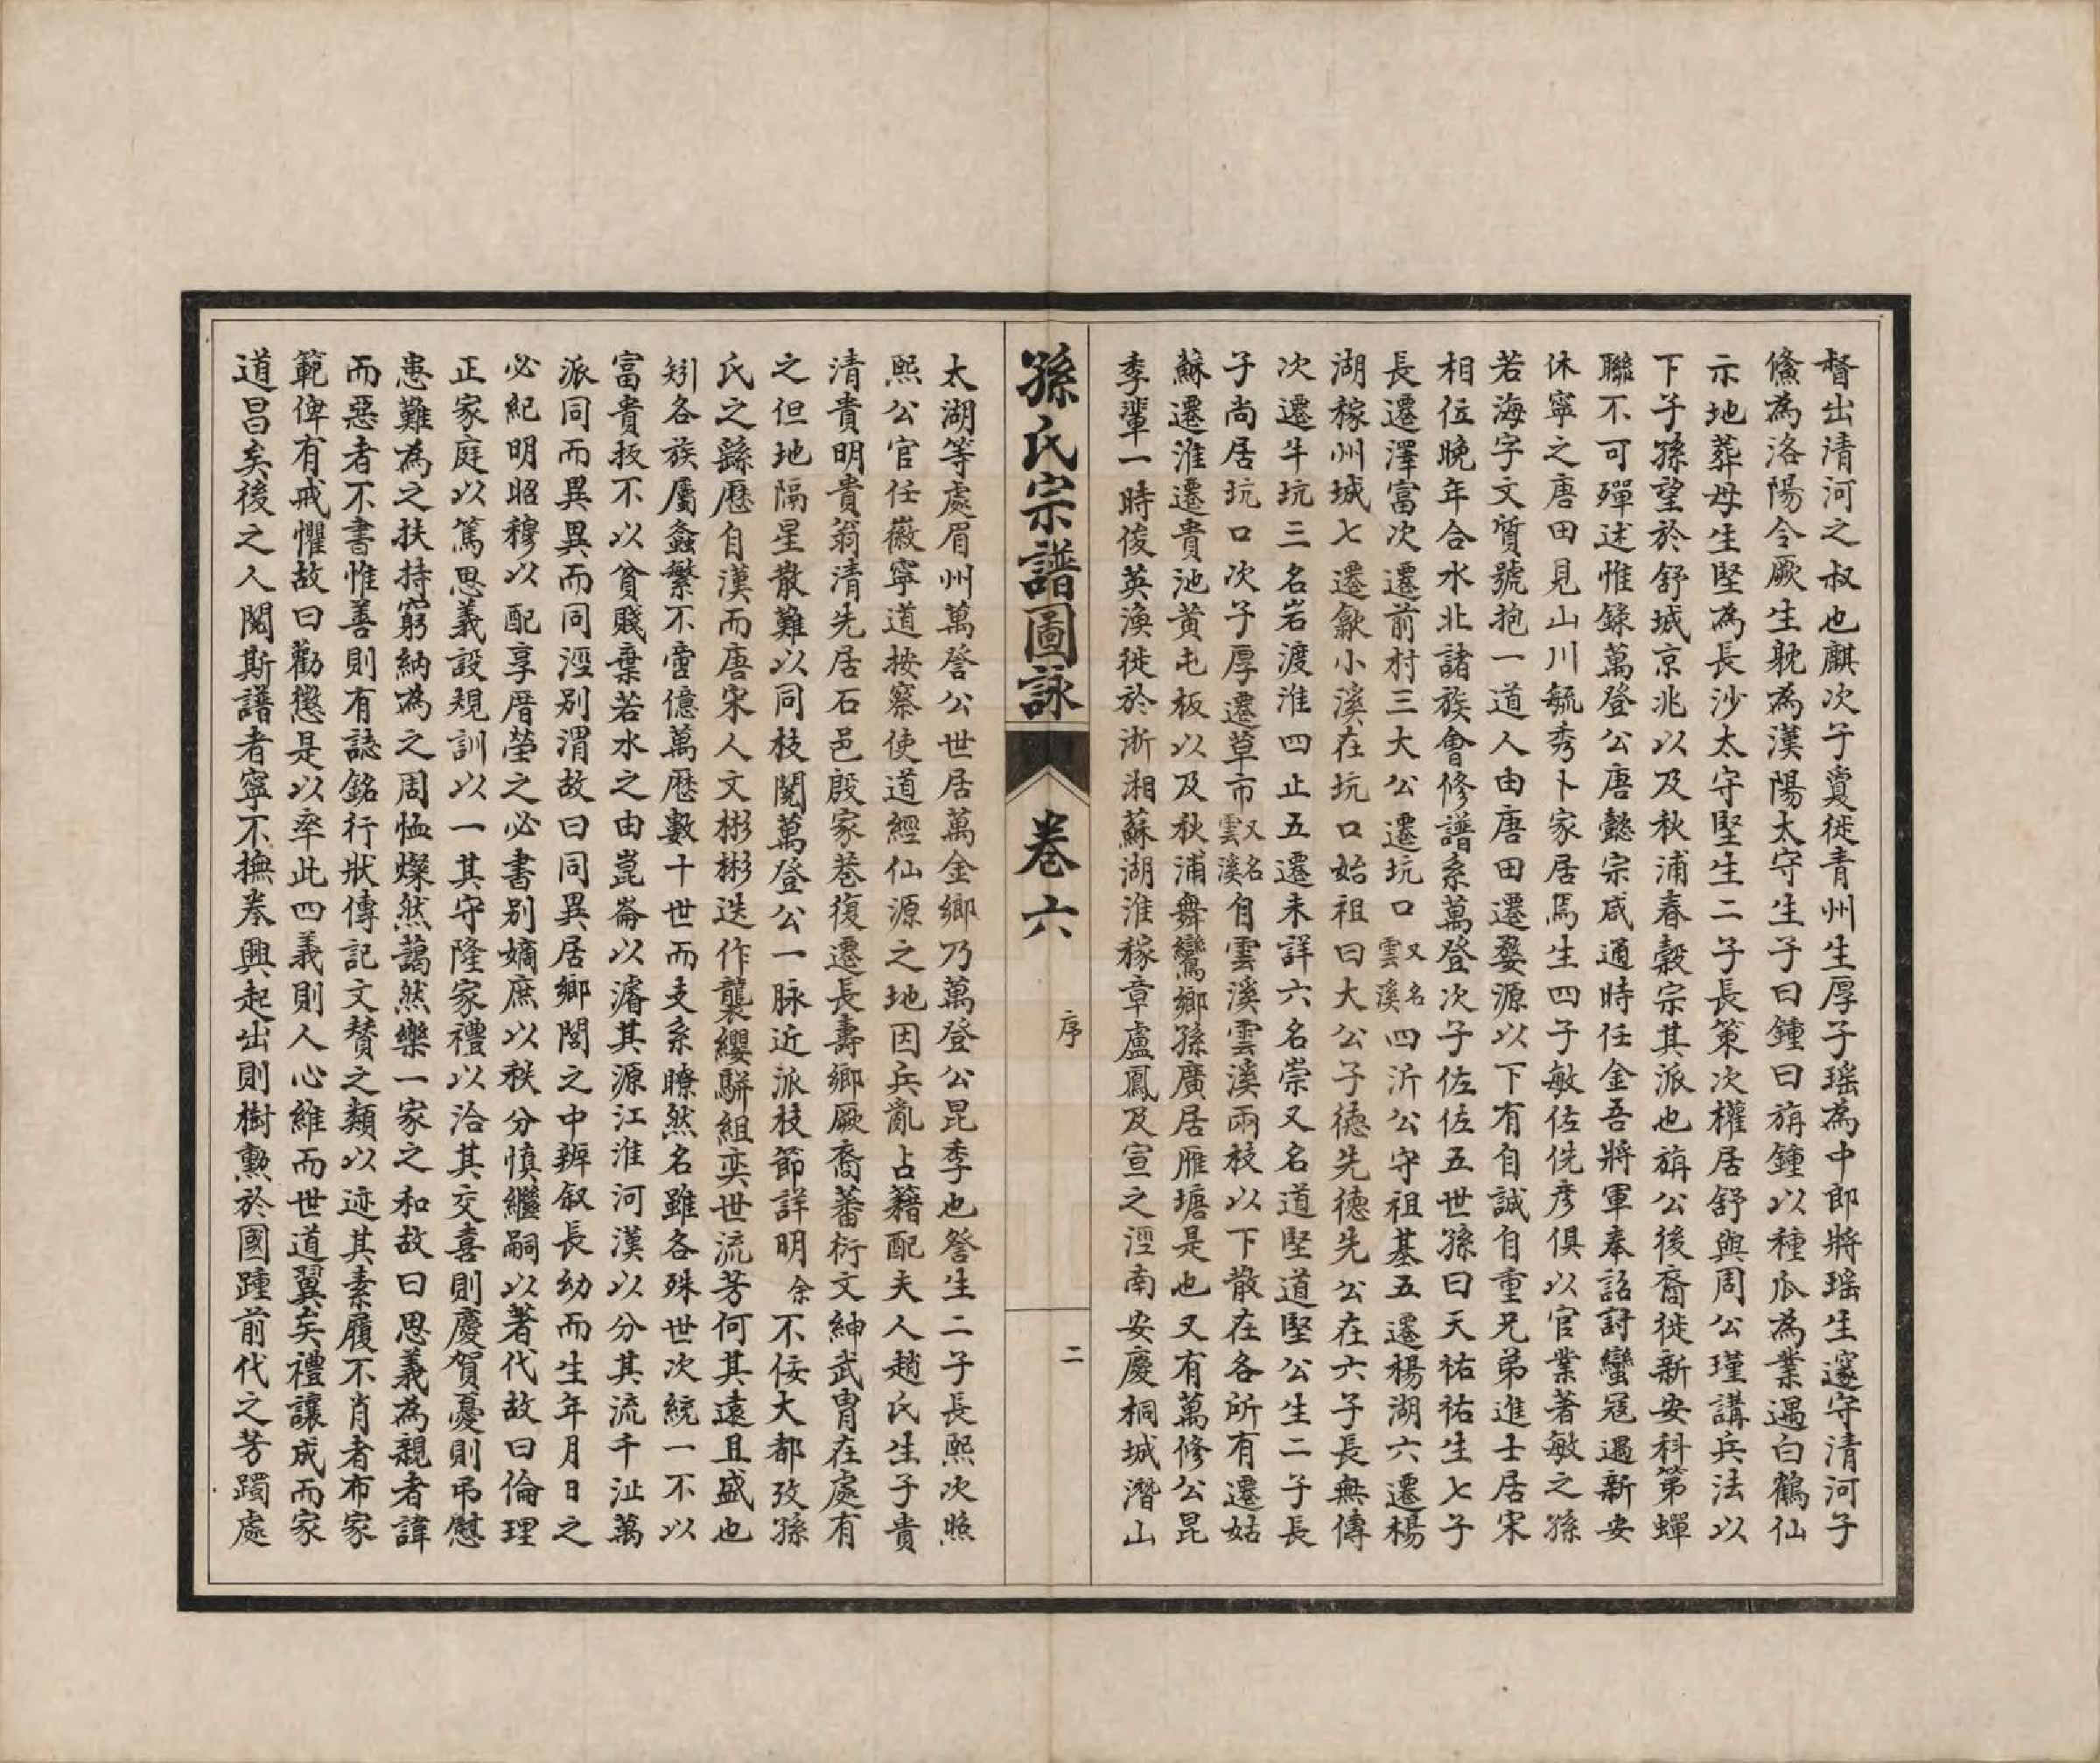 督出清河之叔也麒次子㝠徙青州生厚子瑤為中郎將瑤生邃守清河子
儵為洛陽令厥生躭為漢陽太守生子曰鍾曰旃鍾以種瓜為業遇白鶴仙
示地葬母生堅為長沙太守堅生二子長策次權居舒與周公瑾講兵法以
下子孫望於舒城京兆以及秋浦春穀宗其派也旃公後裔徙新安科第蟬
聯不可殫述惟錄萬登公唐懿宗咸通時任金吾將軍奉詔討蠻寇過新安
休寧之唐田見山川毓秀卜家居焉生四子敏佐侁彥俱以官業著敏之孫
若海字文質號抱一道人由唐田遷婺源以下有自誠自重兄弟進士居宋
相位晚年合水北諸族會修譜系萬登次子佐佐五世孫曰天祐祐生七子
長遷澤富次遷前村三大公遷坑口又名雲溪四沂公守祖基五遷楊湖六遷楊
湖稼州城七遷歙小溪在坑口始祖曰大公子德先德先公在六子長無傳
次遷牛坑三名岩渡淮四止五遷未詳六名崇又名道堅道堅公生二子長
子尚居坑口次子厚遷草市又名雲溪自雲溪雲溪兩枝以下散在各所有遷姑
蘇遷淮遷貴池黃屯板以及秋浦舞鸞鄉孫廣居雁塘是也又有萬修公昆
季輩一時俊英渙徙於淅湘蘇湖淮稼章盧鳳及宣之涇南安慶桐城潛山
孫氏宗譜圖詠
卷六
序
二
太湖等處眉州萬詧公世居萬金鄉乃萬登公昆季也詧生二子長熙次照
熙公官任徽寧道按察使道經仙源之地因兵亂占籍配夫人趙氏生子貴
清貴明貴翁清先居石邑殷家巷復遷長壽鄉厥裔蕃衍文紳武胄在處有
之但地隔星散難以同枝閱萬登公一脉近派枝節詳明余不佞大都攷孫
氏之繇歷自漢而唐宋人文彬彬迭作襲纓駢組奕世流芳何其遠且盛也
矧各族屬螽繁不啻億萬歷數十世而支系瞭然名雖各殊世次統一不以
富貴扳不以貧賤棄若水之由崑崙以濬其源江淮河漢以分其流千沚萬
派同而異異而同涇別渭故曰同異居鄉閭之中辨叙長幼而生年月日之
必紀明昭穆以配享厝塋之必書別嫡庶以秩分慎繼嗣以著代故曰倫理
正家庭以篤思義設規訓以一其守隆家禮以洽其交喜則慶賀憂則弔慰
患難為之扶持窮納為之周恤燦然藹然樂一家之和故曰思義為親者諱
而惡者不書惟善則有誌銘行狀傳記文贊之類以迹其素履不肖者布家
範俾有戒懼故曰勸懲是以率此四義則人心維而世道翼矣禮讓成而家
道昌矣後之人閱斯譜者寧不撫卷興起出則樹勲於國踵前代之芳躅處